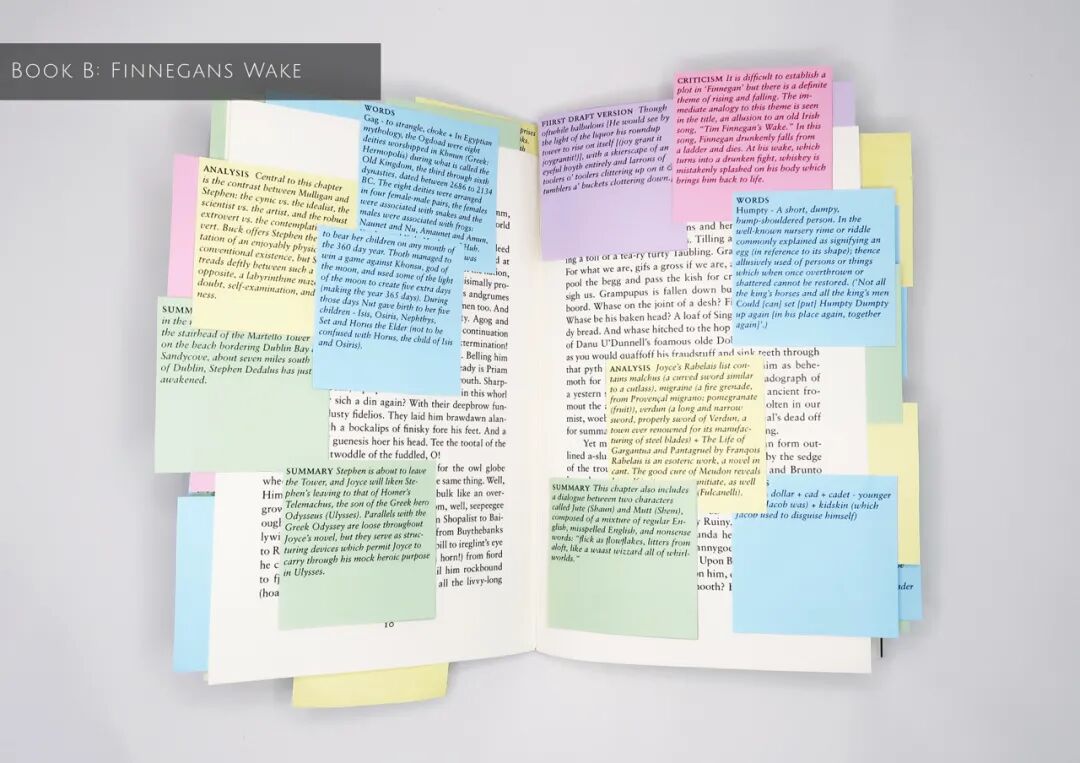 BOOK B: FINNEGANS WAKE
WORDS
Gag - to strangle, choke + In Egyptian
mythology, the Ogdoad were eight
deities worshipped in Khmun (Greek:
Hermopolis) during what is called the
Old Kingdom, the third through sixth
dynasties, dated between 2686 to 2134
BC. The eight deities were arranged
in four female-male pairs, the females
were associated with snakes and the
males were associated with frogs:
Naunet and Nu, Amaunet and Amun,
Huh,
was
to bear her children on any month of
the 360 day year. Thoth managed to
win a game against Khonsu, god of
the moon, and used some of the light
of the moon to create five extra days
(making the year 365 days). During
those days Nut gave birth to her five
children - Isis, Osiris, Nephthys,
Set and Horus the Elder (not to be
confused with Horus, the child of Isis
and Osiris).
ANALYSIS Central to this chapter
is the contrast between Mulligan and
Stephen: the cynic vs. the idealist, the
scientist vs. the artist, and the robust
extrovert vs. the contemplative
vert. Buck offers Stephen the
tation of an enjoyably physic
conventional existence, but S
treads deftly between such a
opposite, a labyrinthine maze
doubt, self-examination, and
ness.
SUMM
in the
the stairhead of the Martello Tower
on the beach bordering Dublin Bay
Sandycove, about seven miles south
of Dublin, Stephen Dedalus has just
awakened.
isimally pro-
andgrumes
men too. And
Agog and
continuation
termination!
Belling him
ady is Priam
outh. Sharp-
in this whorl
sich a din again? With their deepbrow fun-
usty fidelios. They laid him brawdawn alan-
h a bockalips of finisky fore his feet. And a
guenesis hoer his head. Tee the tootal of the
twoddle of the fuddled, O!
for the owl globe
whe same thing. Well,
Him bulk like an over-
grow m, well, seepeegee
ough Shopalist to Bai-
lywi from Buythebanks
to R bill to ireglint's eye
he c horn!) from fiord
to fj il him rockbound
(hoa all the livvy-long
SUMMARY Stephen is about to leave
the Tower, and Joyce will liken Ste-
phen's leaving to that of Homer's
Telemachus, the son of the Greek hero
Odysseus (Ulysses). Parallels with the
Greek Odyssey are loose throughout
Joyce's novel, but they serve as struc-
turing devices which permit Joyce to
carry through his mock heroic purpose
in Ulysses.
FIIRST DRAFT VERSION Though
oftwhile balbulous [He would see by
the light of the liquor his roundup
tower to rise on itself [(joy grant it
joygrantit!)], with a skierscape of an
eyeful hoyth entirely and larrons of
toolers o' toolers clittering up on it &
tumblers a' buckets clottering down.
CRITICISM It is difficult to establish a
plot in 'Finnegan' but there is a definite
theme of rising and falling. The im-
mediate analogy to this theme is seen
in the title, an allusion to an old Irish
song, "Tim Finnegan's Wake." In this
song, Finnegan drunkenly falls from
a ladder and dies. At his wake, which
turns into a drunken fight, whiskey is
mistakenly splashed on his body which
brings him back to life.
WORDS
Humpty - A short, dumpy,
hump-shouldered person. In the
well-known nursery rime or riddle
commonly explained as signifying an
egg (in reference to its shape); thence
allusively used of persons or things
which when once overthrown or
shattered cannot be restored. ('Not all
the king's horses and all the king's men
Could [can] set [put] Humpty Dumpty
up again [in his place again, together
again]'.)
ns and her
Tilling a
ing a toll of a tea-ry turty Taubling. Gra
For what we are, gifs a gross if we are,
pool the begg and pass the kish for cr
sigh us. Grampupus is fallen down bu
boord. Whase on the joint of a desh? Fi
Whase be his baken head? A loaf of Sing
dy bread. And whase hitched to the hop
of Danu U'Dunnell's foamous olde Dol
as you would quaffoff his fraudstuff and sink teeth through
that pyth im as behe-
moth for adograph of
a yestern ancient fro-
mout the olten in our
mist, woeb al's dead off
for summa ng.
Yet m n form out-
lined a-slu by the sedge
of the trou and Brunto
ANALYSIS Joyce's Rabelais list con-
tains malchus (a curved sword similar
to a cutlass), migraine (a fire grenade,
from Provençal migrano; pomegranate
(fruit)), verdun (a long and narrow
sword, properly sword of Verdun, a
town ever renowned for its manufac-
turing of steel blades) + The Life of
Gargantua and Pantagruel by François
Rabelais is an esoteric work, a novel in
cant. The good cure of Meudon reveals
initiate, as well
(Fulcanelli).
SUMMARY This chapter also includes
a dialogue between two characters
called Jute (Shaun) and Mutt (Shem),
composed of a mixture of regular En-
glish, misspelled English, and nonsense
words: "flick as flowflakes, litters from
aloft, like a waast wizzard all of whirl-
worlds."
dollar + cad + cadet - younger
Jacob was) + kidskin (which
Jacob used to disguise himself)
Ruiny.
anda he
nnygoe
Upon B
on him,
mooth? H
10